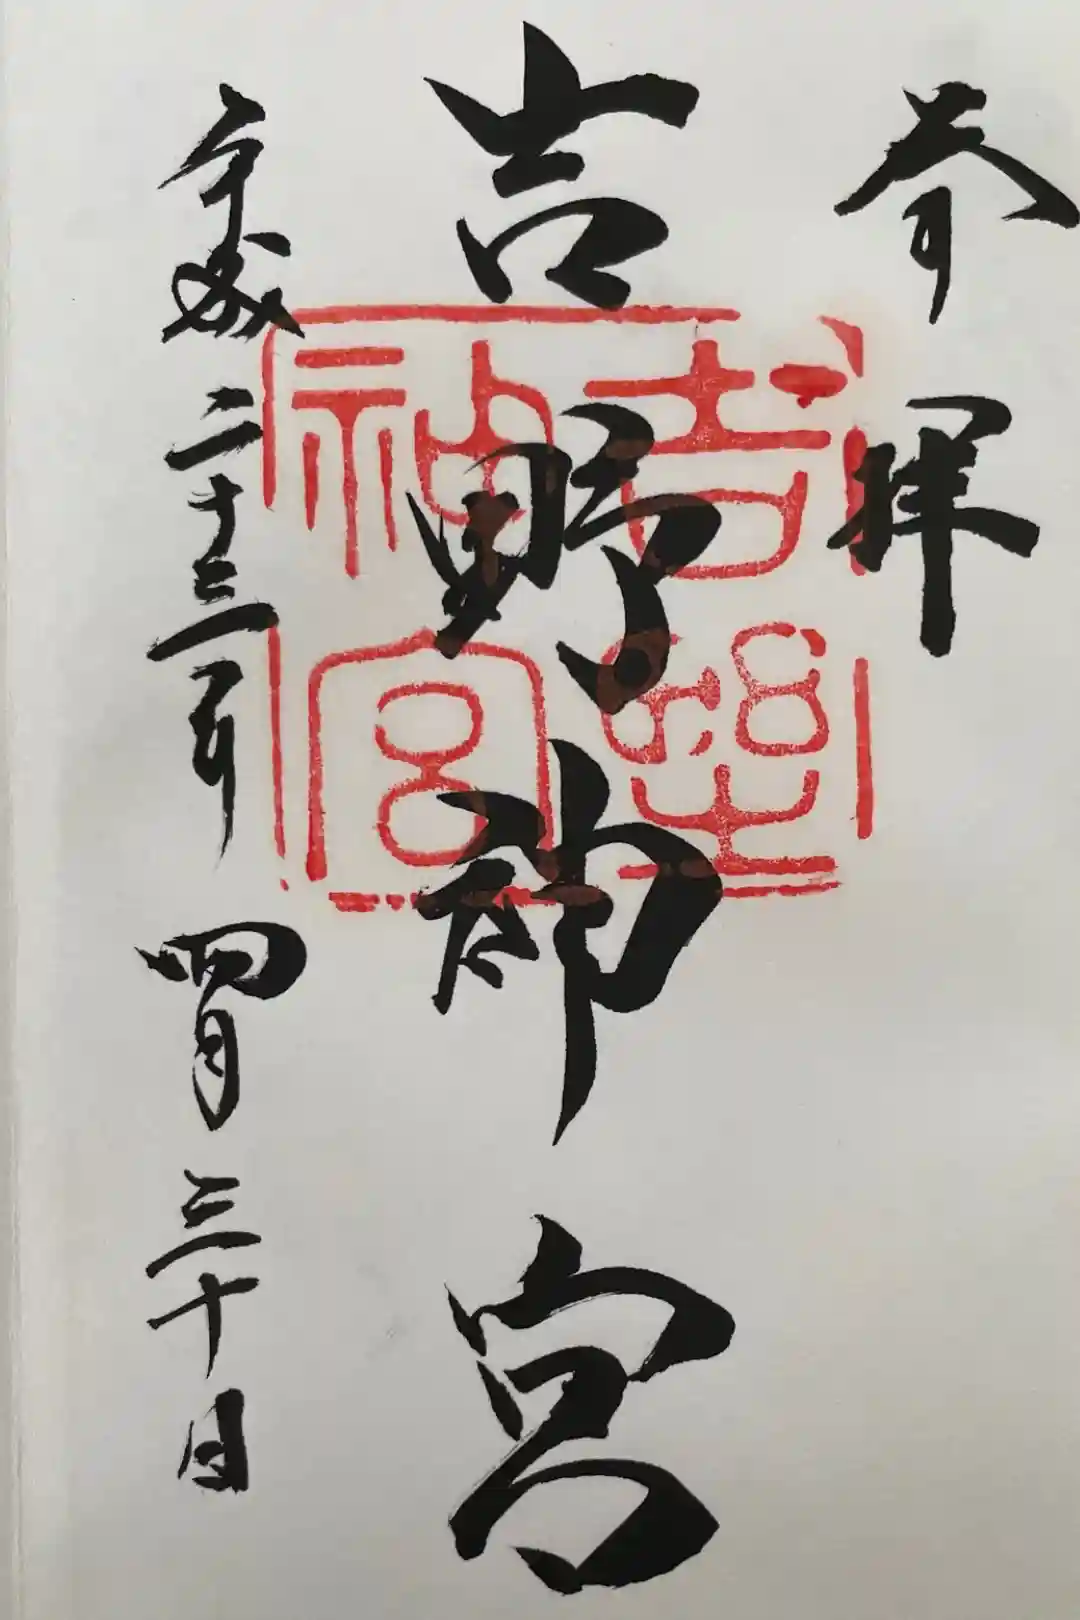 奉拝
吉野神宮
平成二十三年四月三十日
吉野
神宮